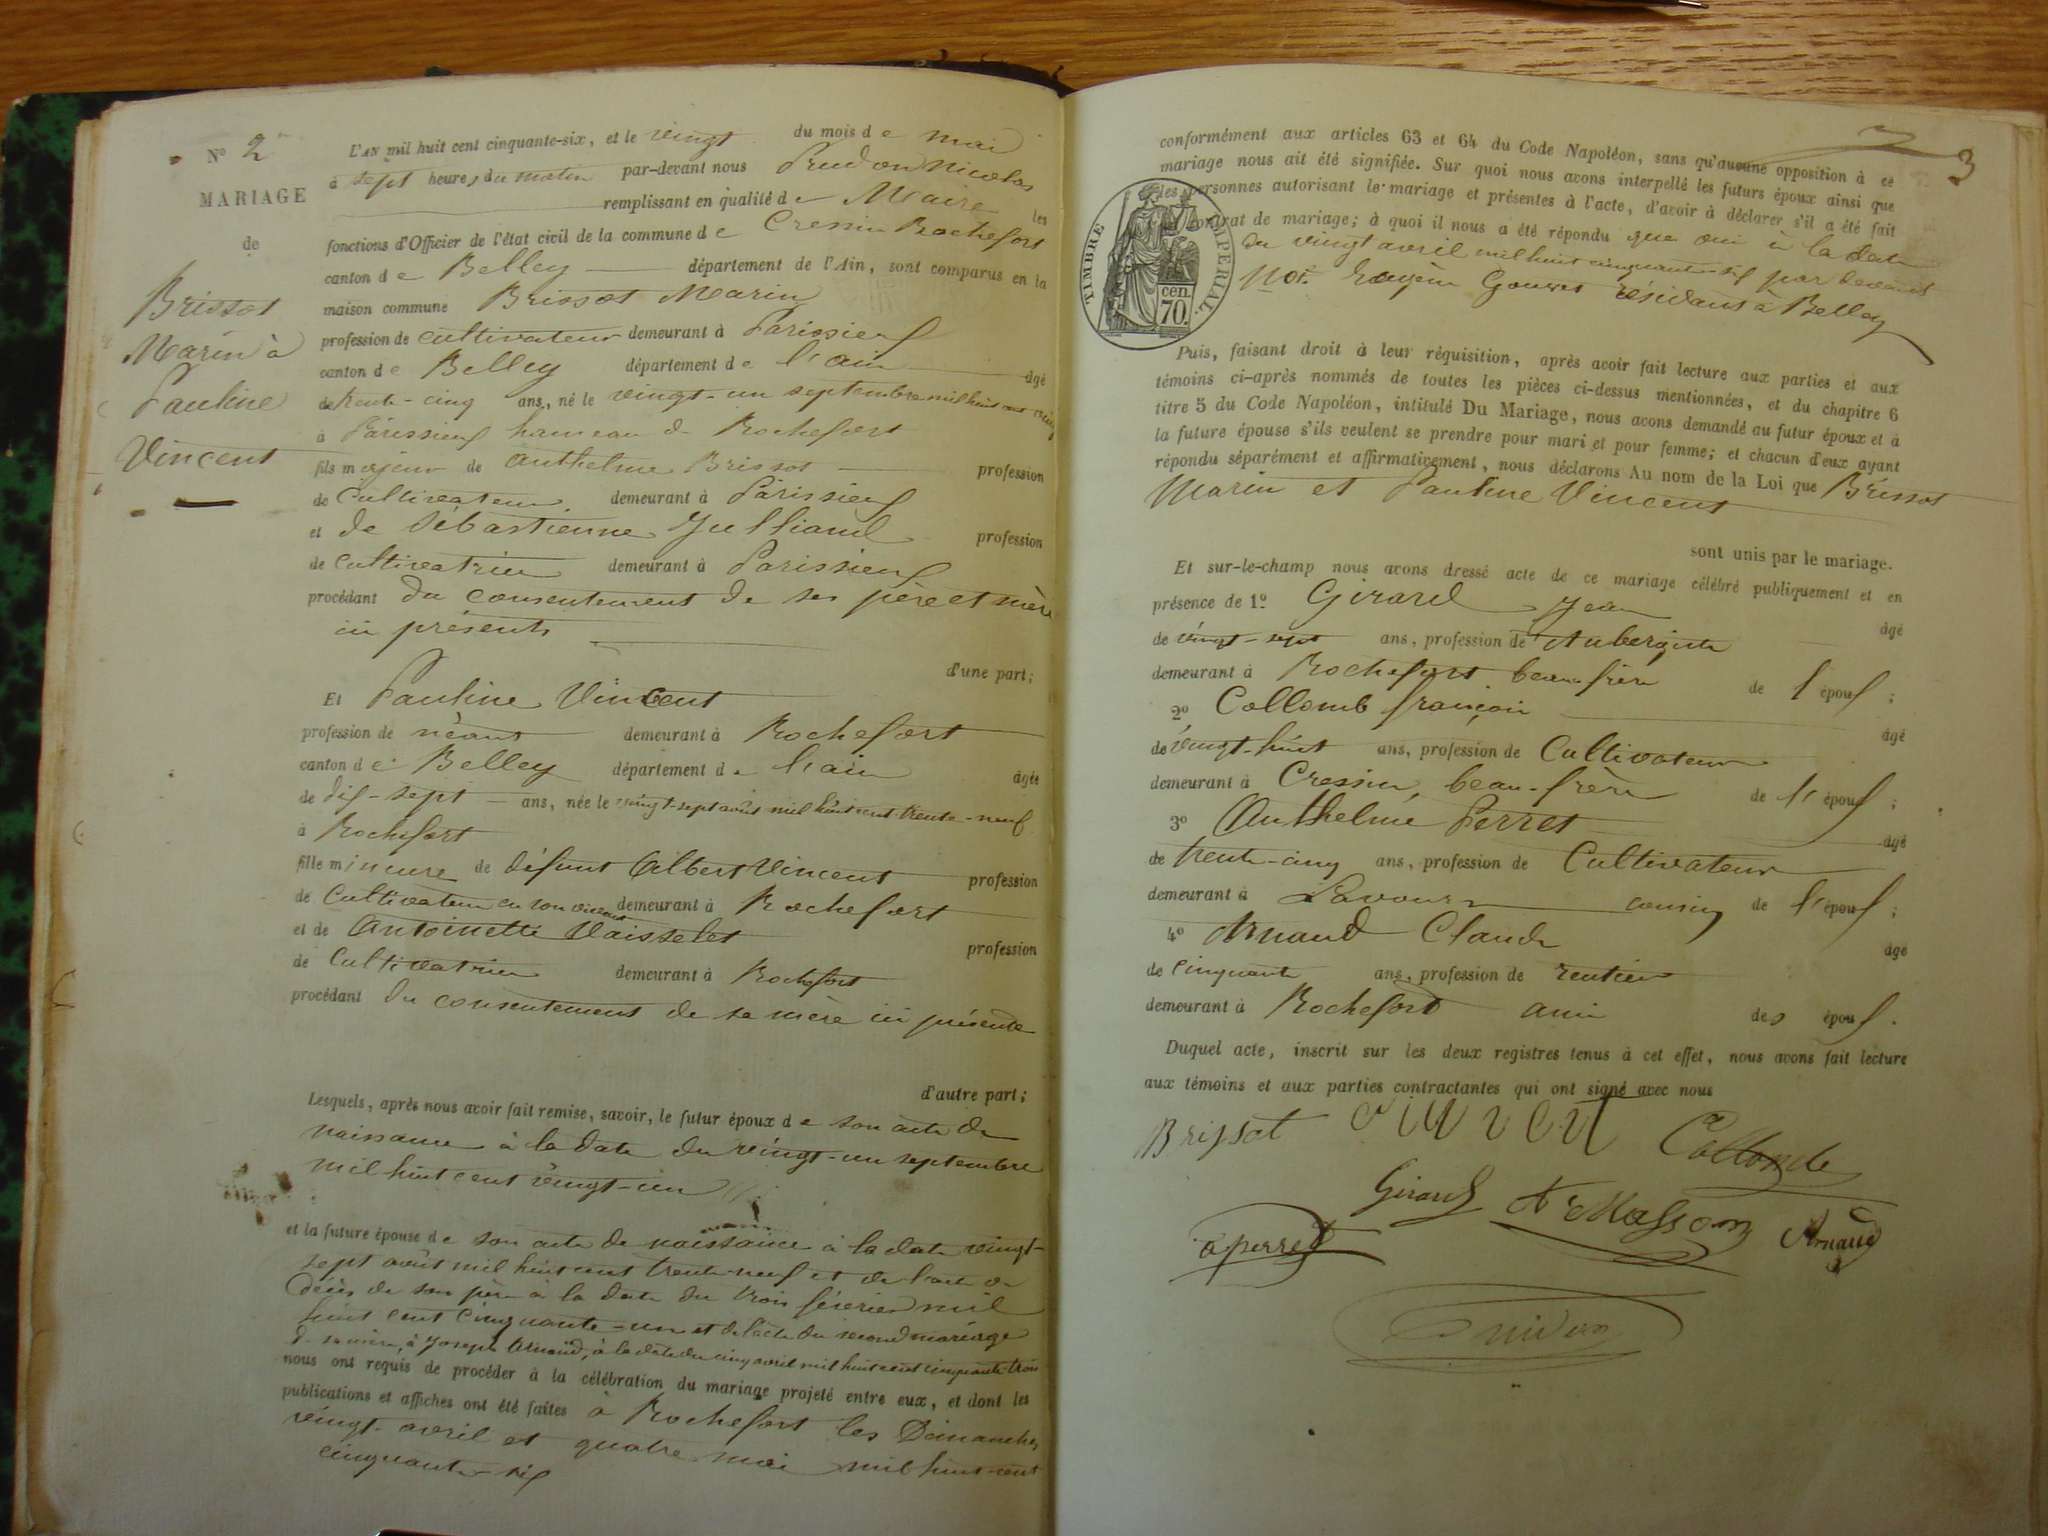 No 2
MARIAGE
de
Brissot
Marin à
Pauline
Vincent
L'AN mil huit cent cinquante-six, et le vingt du mois de mai
à sept heures du matin par-devant nous Prudon Nicolas
remplissant en qualité de Maire les
fonctions d'Officier de l'état civil de la commune de Cressin Rochefort
canton de Belley département de l'Ain, sont comparus en la
maison commune Brissot Marin
profession de cultivateur demeurant à Parissieu
canton de Belley département de l'ain âgé
de trente-cinq ans, né le vingt-un septembre mil huit cent vingt
à Parissieu hameau de Rochefort
fils majeur de Anthelme Brissot profession
de Cultivateur demeurant à Parissieu
et de Sébastienne Julliand profession
de cultivatrice demeurant à Parissieu
procédant du consentement de ses père et mère
ici présents
d'une part;
Et Pauline Vincent
profession de néant demeurant à Rochefort
canton de Belley département de l'ain âgée
de dix-sept ans, née le vingt-sept août mil huit cent trente-neuf
à Rochefort
fille mineure de défunt Albert Vincent profession
de Cultivateur en son vivant demeurant à Rochefort
et de Antoinette Vaisselet profession
de Cultivatrice demeurant à Rochefort
procédant du consentement de sa mère ici présente
d'autre part;
Lesquels, après nous avoir fait remise, savoir, le futur époux de son acte de
naissance à la date du vingt-un septembre
mil huit cent vingt-un
et la future épouse de son acte de naissance à la date vingt-
sept août mil huit cent trente-neuf et de l'acte de
décès de son père à la date du trois février mil
huit cent cinquante-un et de l'acte du second mariage
de sa mère, à Joseph Arnaud, à la date du cinq avril mil huit cent cinquante-trois
nous ont requis de procéder à la célébration du mariage projeté entre eux, et dont les
publications et affiches ont été faites à Rochefort les Dimanches
vingt avril et quatre mai mil huit cent
cinquante-six
3
conformément aux articles 63 et 64 du Code Napoléon, sans qu'aucune opposition à ce
mariage nous ait été signifiée. Sur quoi nous avons interpellé les futurs époux ainsi que
les personnes autorisant le mariage et présentes à l'acte, d'avoir à déclarer s'il a été fait
contrat de mariage; à quoi il nous a été répondu que oui à la date
du vingt avril mil huit cinquante-six par devant
Not. Gouvet résidant à Belley
TIMBRE IMPÉRIAL
70 cen.
Puis, faisant droit à leur réquisition, après avoir fait lecture aux parties et aux
témoins ci-après nommés de toutes les pièces ci-dessus mentionnées, et du chapitre 6
titre 5 du Code Napoléon, intitulé Du Mariage, nous avons demandé au futur époux et à
la future épouse s'ils veulent se prendre pour mari et pour femme; et chacun d'eux ayant
répondu séparément et affirmativement, nous déclarons Au nom de la Loi que Brissot
Marin et Pauline Vincent
sont unis par le mariage.
Et sur-le-champ nous avons dressé acte de ce mariage célébré publiquement et en
présence de 1º Girard Jean âgé
de vingt-sept ans, profession de Aubergiste
demeurant à Rochefort beau-frère de l'époux;
2º Collomb françois âgé
de vingt-huit ans, profession de Cultivateur
demeurant à Cressin, beau-frère de l'époux;
3º Anthelme Perret âgé
de trente-cinq ans, profession de Cultivateur
demeurant à Lavours cousin de l'époux;
4º Arnaud Claude âgé
de cinquante ans, profession de rentier
demeurant à Rochefort ami des époux.
Duquel acte, inscrit sur les deux registres tenus à cet effet, nous avons fait lecture
aux témoins et aux parties contractantes qui ont signé avec nous
Brissot vincent Collombe
Girard Masson Arnaud
a perret
Prudon